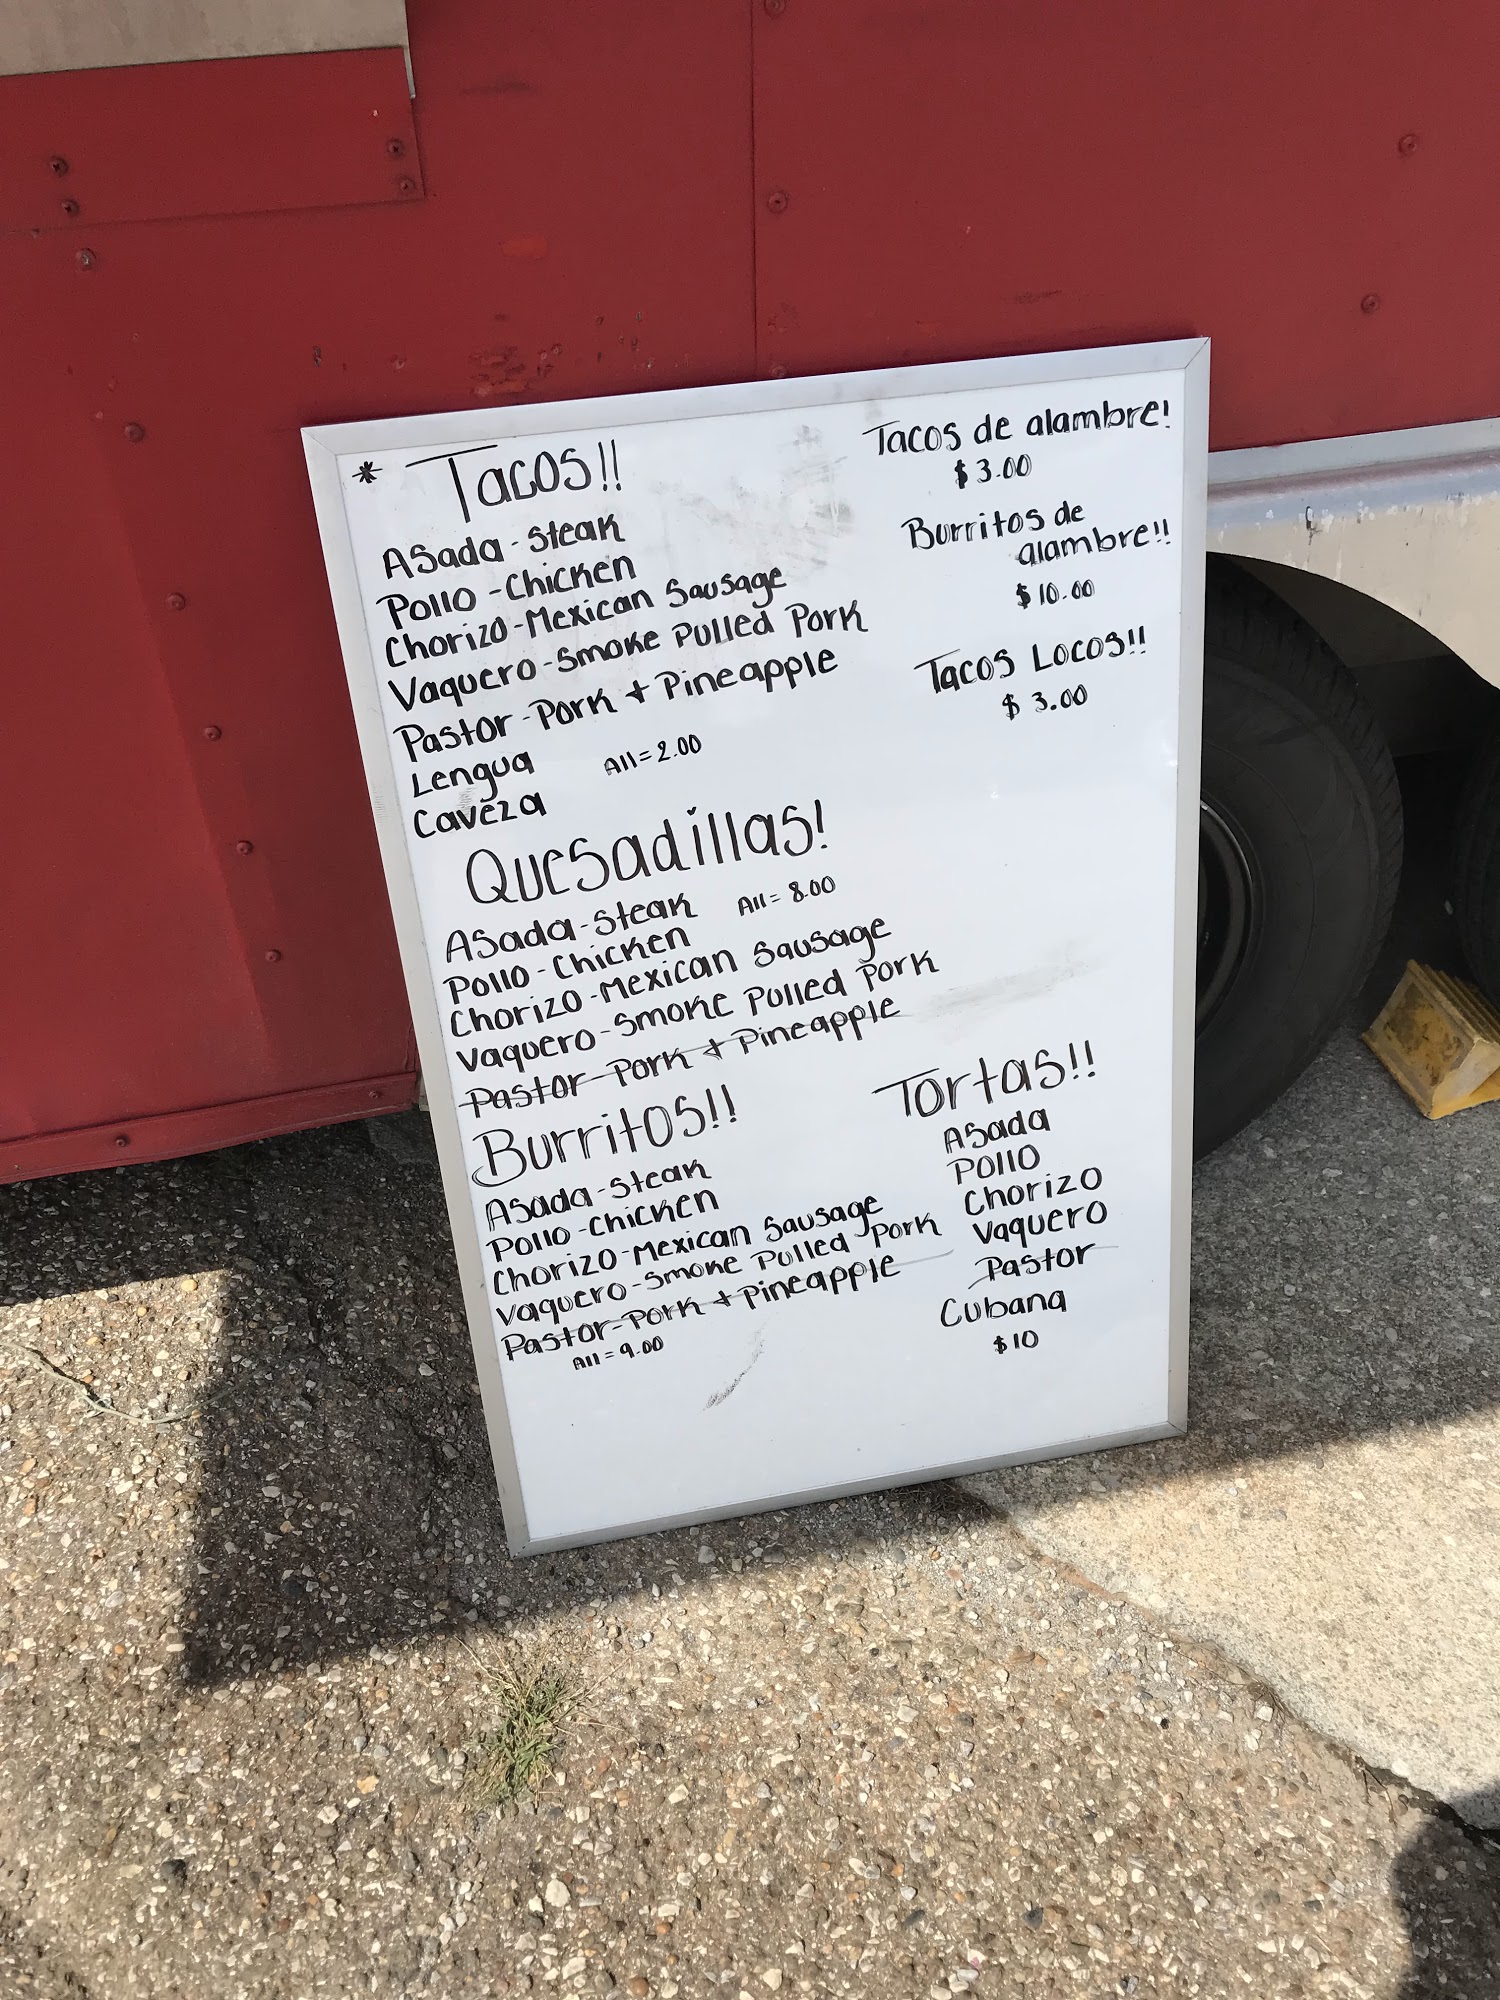 * Tacos!!
Asada - Steak
Pollo - Chicken
Chorizo - Mexican Sausage
Vaquero - Smoke Pulled Pork
Pastor - Pork + Pineapple
Lengua
All = 2.00
Caveza
Quesadillas!
Asada - Steak
All = 8.00
Pollo - Chicken
Chorizo - Mexican Sausage
Vaquero - Smoke Pulled Pork
Pastor - Pork + Pineapple
Burritos!!
Asada - Steak
Pollo - Chicken
Chorizo - Mexican Sausage
Vaquero - Smoke Pulled Pork
Pastor - Pork + Pineapple
All = 9.00
Tacos de alambre!
$ 3.00
Burritos de
alambre!!
$ 10.00
Tacos Locos!!
$ 3.00
Tortas!!
Asada
Pollo
Chorizo
Vaquero
Pastor
Cubana
$ 10